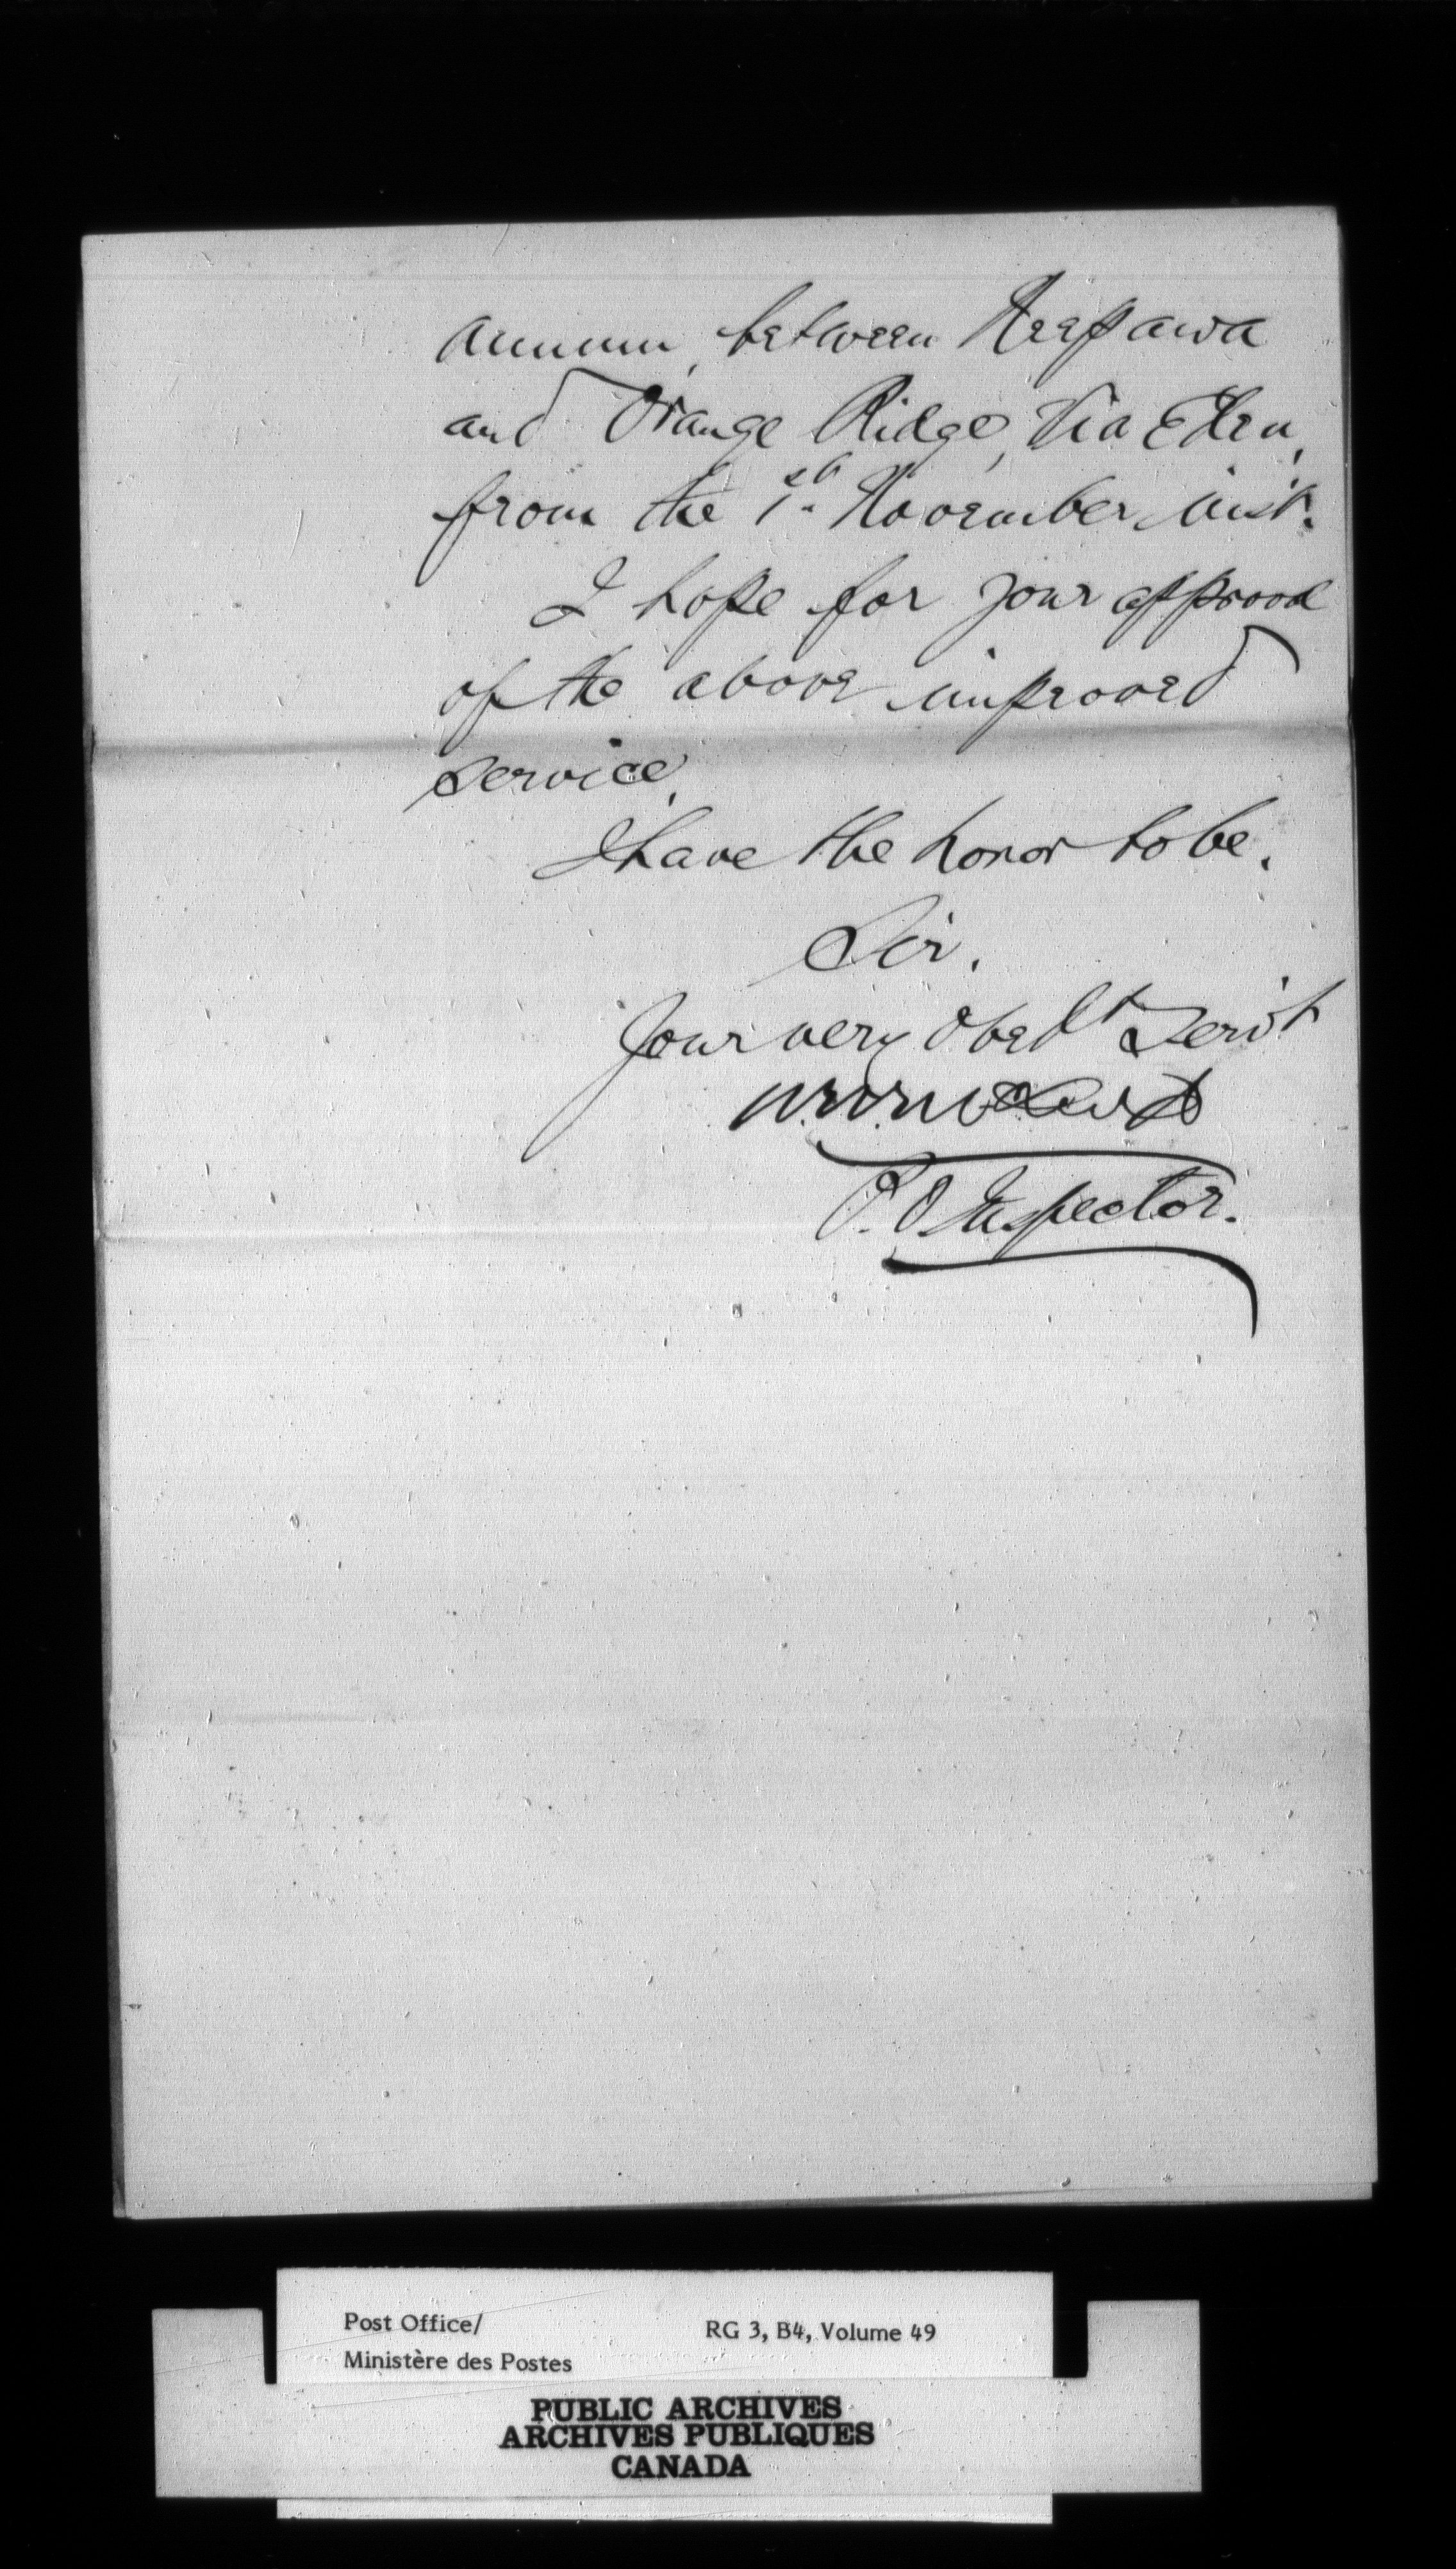 annum, between Neepawa
and Orange Ridge, Via Eden,
from the 1st November inst.
I hope for your approval
of the above improved
service.
I have the honor to be,
Sir,
Your very Obedt Servt
W.W. McLeod
P.O. Inspector.
Post Office/
Ministère des Postes
RG 3, B4, Volume 49
PUBLIC ARCHIVES
ARCHIVES PUBLIQUES
CANADA